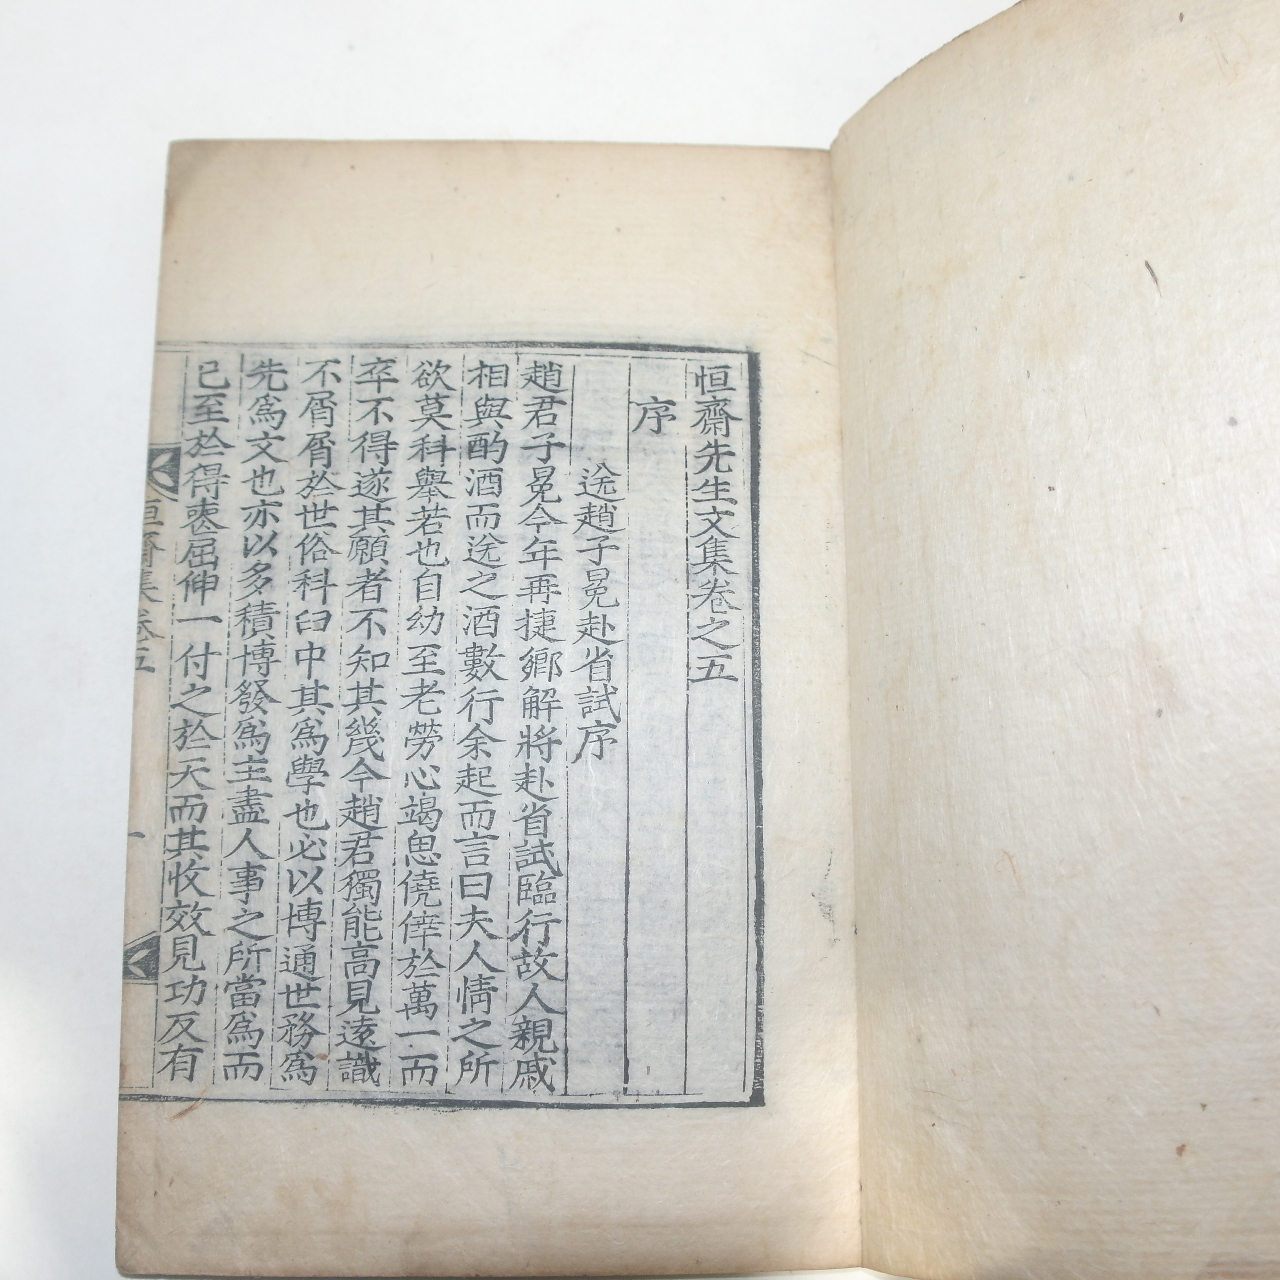 恒齋先生文集卷之五
序
送趙子冕赴省試序
趙君子冕今年再捷鄉解將赴省試臨行故人親戚
相與酌酒而送之酒數行余起而言曰夫人情之所
欲莫科舉若也自幼至老勞心竭思僥倖於萬一而
卒不得遂其願者不知其幾今趙君獨能高見遠識
不屑屑於世俗科臼中其爲學也必以博通世務爲
先爲文也亦以多積博發爲主盡人事之所當爲而
已至於得喪屈伸一付之於天而其收效見功反有
恒齋集卷五
一